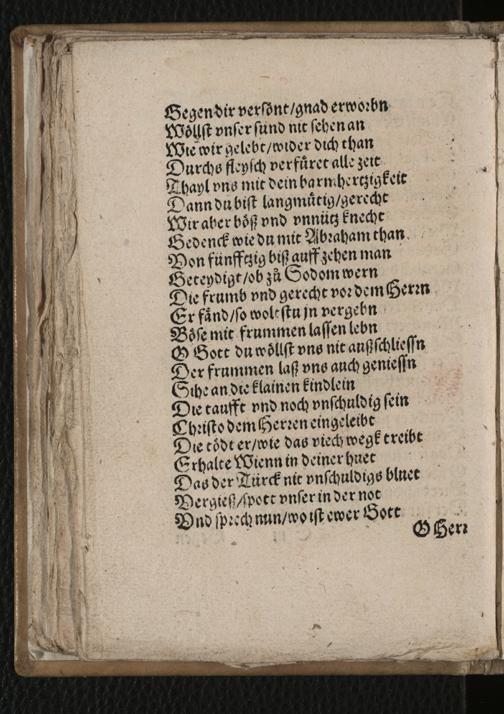 Gegen dir versönt/gnad erworbn
Wöllst vnser sünd nit sehen an
Wie wir gelebt/wider dich than
Durchs fleysch verfüret alle zeit
Thayl vns mit dein barmhertzigkeit
Dann du bist langmütig/gerecht
Wir aber böß vnd vnnütz knecht
Gedenck wie du mit Abraham than
Von fünfftzig biß auff zehen man
Geteydigt/ob zů Sodom wern
Die frumb vnd gerecht vor dem Herrn
Er fänd/so woltstu jn vergebn
Böse mit frummen lassen lebn
O Gott du wöllst vns nit außschliessn
Der frummen laß vns auch geniessn
Sihe an die klainen kindlein
Die taufft vnd noch vnschuldig sein
Christo dem Herren eingeleibt
Die tödt er/wie das viech wegk treibt
Erhalte Wienn in deiner huet
Das der Türck nit vnschuldigs bluet
Vergieß/spott vnser in der not
Vnd sprech nun/wo ist ewer Gott
O Herr